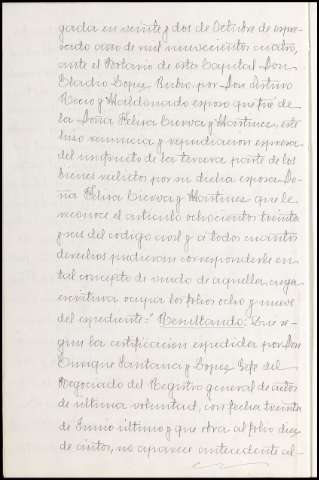 gada en veinte y dos de Octubre de expre-
sado año de mil novecientos cuatro,
ante el Notario de esta Capital Don
Eladio Lopez Rubio, por Don Arturo
y Maldonado esposo que fué de
la Doña Felisa Cueva y Martinez, este
hizo renuncia y repudiacion expresa
del usufructo de la tercera parte de los
bienes relictos por su dicha esposa Do-
ña Felisa Cueva y Martinez que le
reconoce el articulo ochocientos treinta
y seis del codigo civil y á todos cuantos
derechos pudieran corresponderle en
tal concepto de viudo de aquella, cuya
escritura ocupa los folios ocho y nueve
del expediente:" Resultando: Que se-
gun la certificacion expedida por Don
Enrique Santana y Lopez Gefe del
Negociado del Registro general de actos
de última voluntad, con fecha treinta
de Junio último y que obra al folio diez
de autos, no aparece antecedente al-